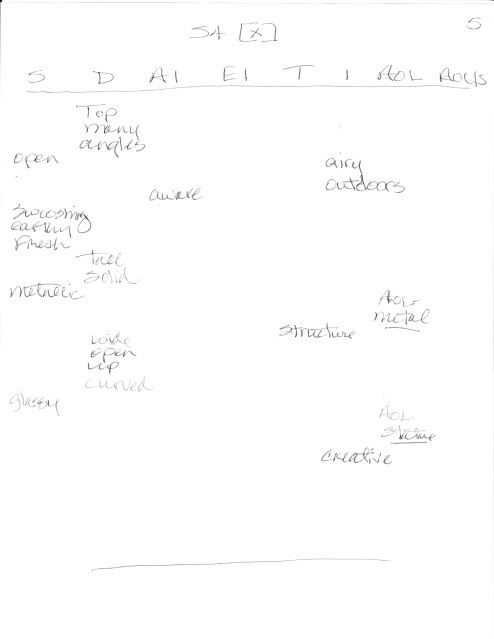 5
S4 [X]
S D AI EI T I AOL AOL/S
Top
many
angles
open
airy
outdoors
aware
swooshing
earthy
Fresh
tall
solid
metallic
AOL-
metal
structure
wide
open
up
curved
glassy
AOL-
statue
creative